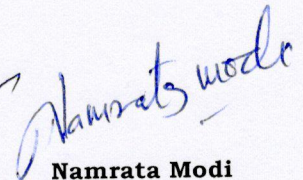 Namrata Modi
Namrata Modi